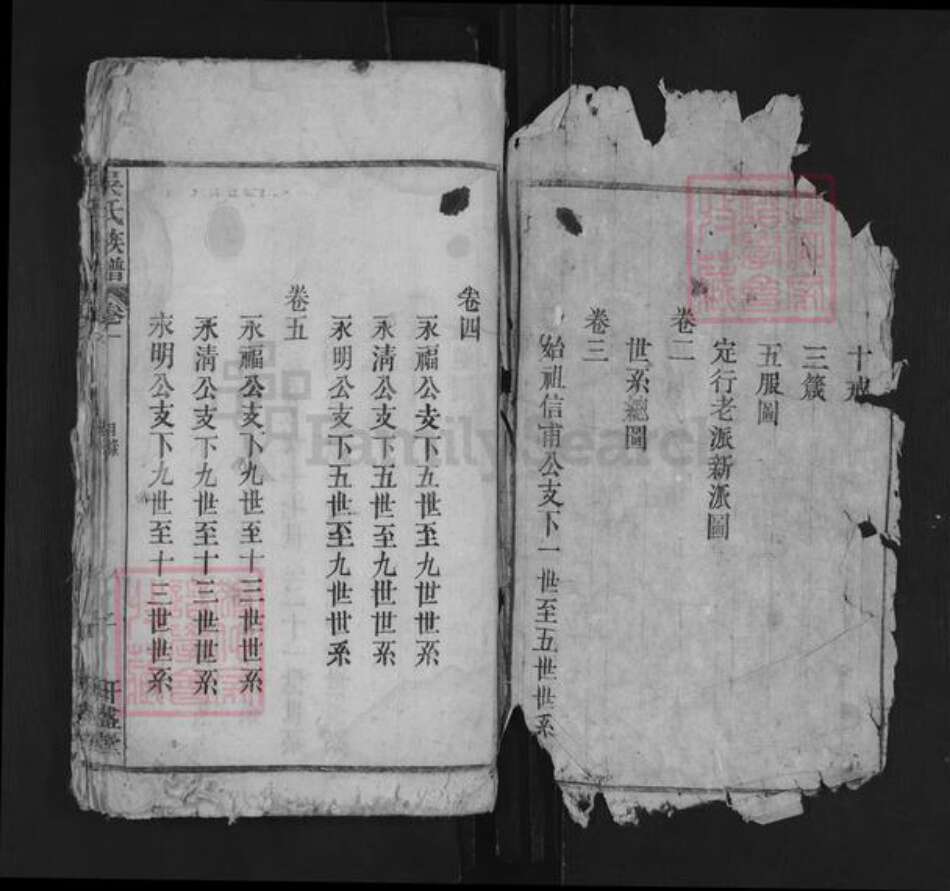 十戒
三箴
五服圖
定行老派新派圖
卷二
世系總圖
卷三
始祖信甫公支下一世至五世世系
卷四
永福公支下五世至九世世系
永清公支下五世至九世世系
永明公支下五世至九世世系
卷五
永福公支下九世至十三世世系
永清公支下九世至十三世世系
永明公支下九世至十三世世系
吳氏族譜 卷一 目錄
FamilySearch